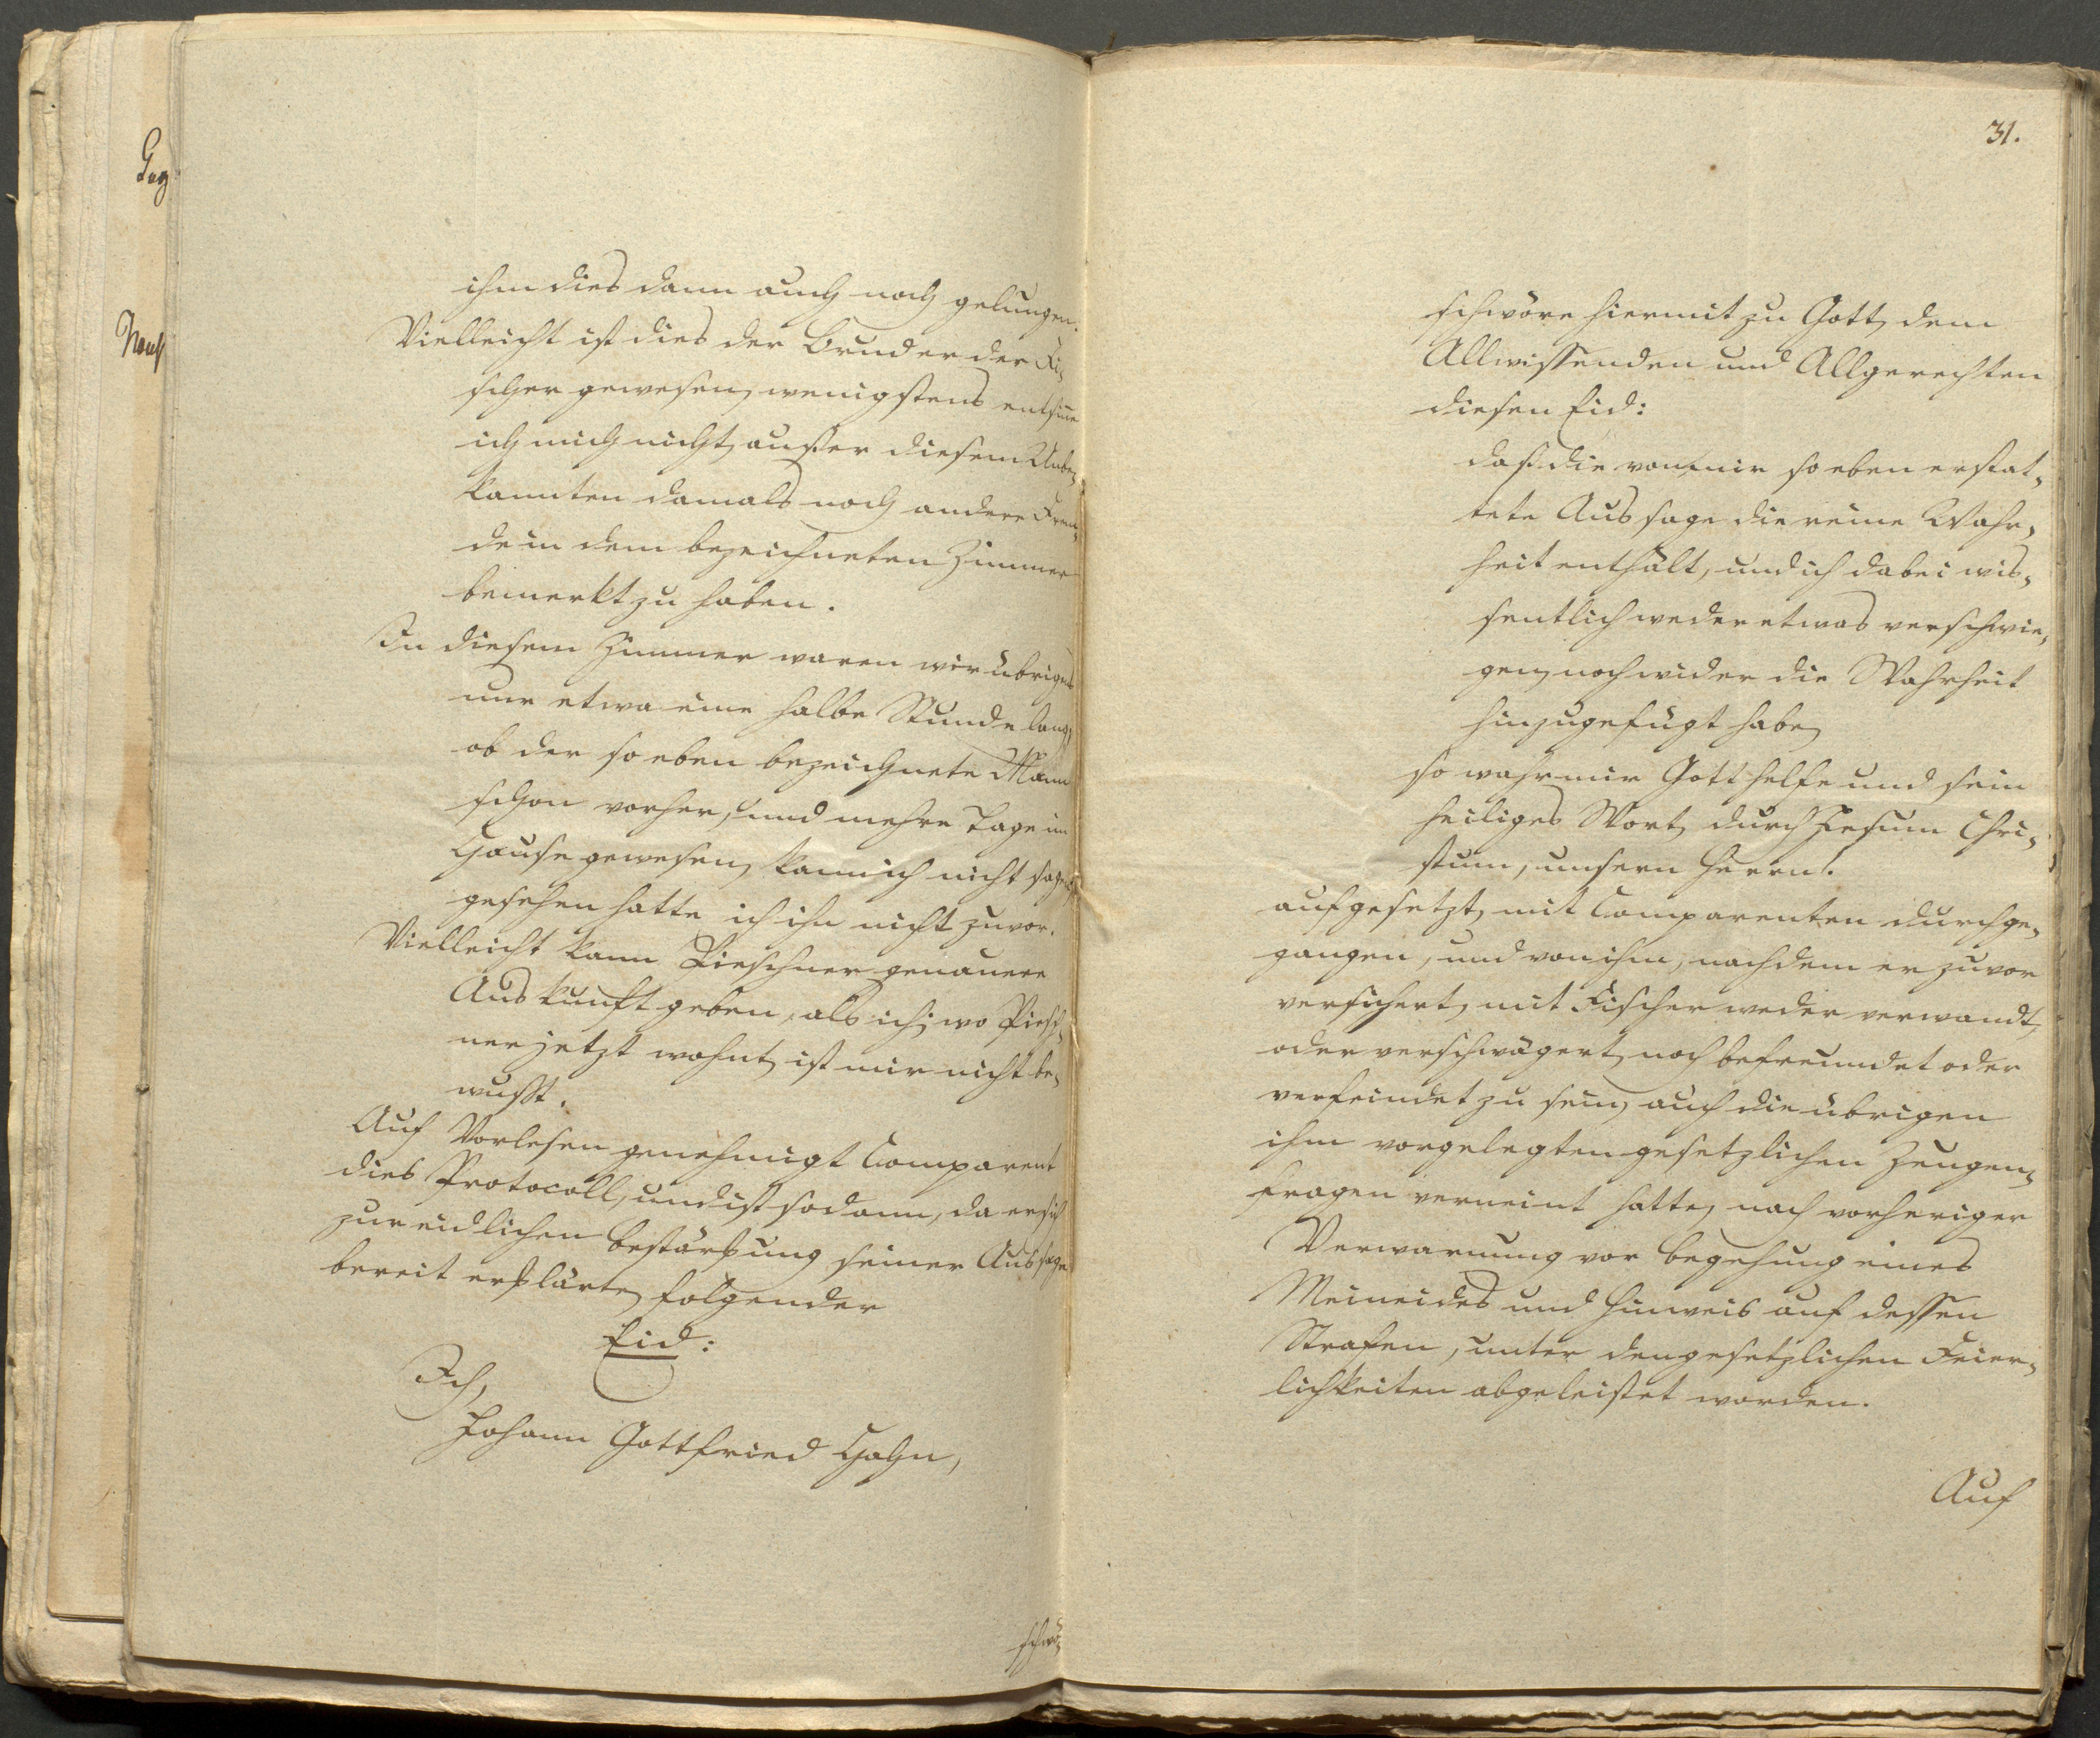 ihm dies dann auch noch gelungen.
Vielleicht ist dies der Bruder der Fi-
scher gewesen, wenigstens entsinne
ich mich nicht, außer diesem Unbe-
kannten damals noch andere Frem-
de in dem bezeichneten Zimmer
bemerkt zu haben.
In diesem Zimmer waren wir übrigens
nur etwa eine halbe Stunde lang,
ob der so eben bezeichnete Mann
schon vorher, und mehre Tage im
Hause gewesen, kann ich nicht sagen,
gesehen hatte ich ihn nicht zuvor.
Vielleicht kann Pieschner genauere
Auskunft geben, als ich; wo Piesch-
ner jetzt wohnt, ist mir nicht be-
wußt.
Auf Vorlesen genehmigt Comparent
dies Protocoll, und ist sodann, da er sich
zur eidlichen Bestärkung seiner Aussage
bereit erklärte, folgender
Eid:
Ich,
Johann Gottfried Hahn,
schwö-
31.
schwöre hiermit zu Gott, dem
Allwissenden und Allgerechten
diesen Eid:
daß die von mir so eben erstat-
tete Aussage die reine Wahr-
heit enthält, und ich dabei wis-
sentlich weder etwas verschwie-
gen, noch wider die Wahrheit
hinzugefügt habe,
so wahr mir Gott helfe und sein
heiliges Wort, durch Jesum Chri-
stum, unsern Herrn!
aufgesetzt, mit Comparenten durchge-
gangen, und von ihm, nachdem er zuvor
versichert, mit Fischer weder verwandt,
oder verschwägert, noch befreundet oder
verfeindet zu sein, auch die übrigen
ihm vorgelegten gesetzlichen Zeugen-
fragen verneint hatte, nach vorheriger
Verwarnung vor Begehung eines
Meineides und Hinweis auf dessen
Strafen, unter den gesetzlichen Feier-
lichkeiten abgeleistet worden.
Auf